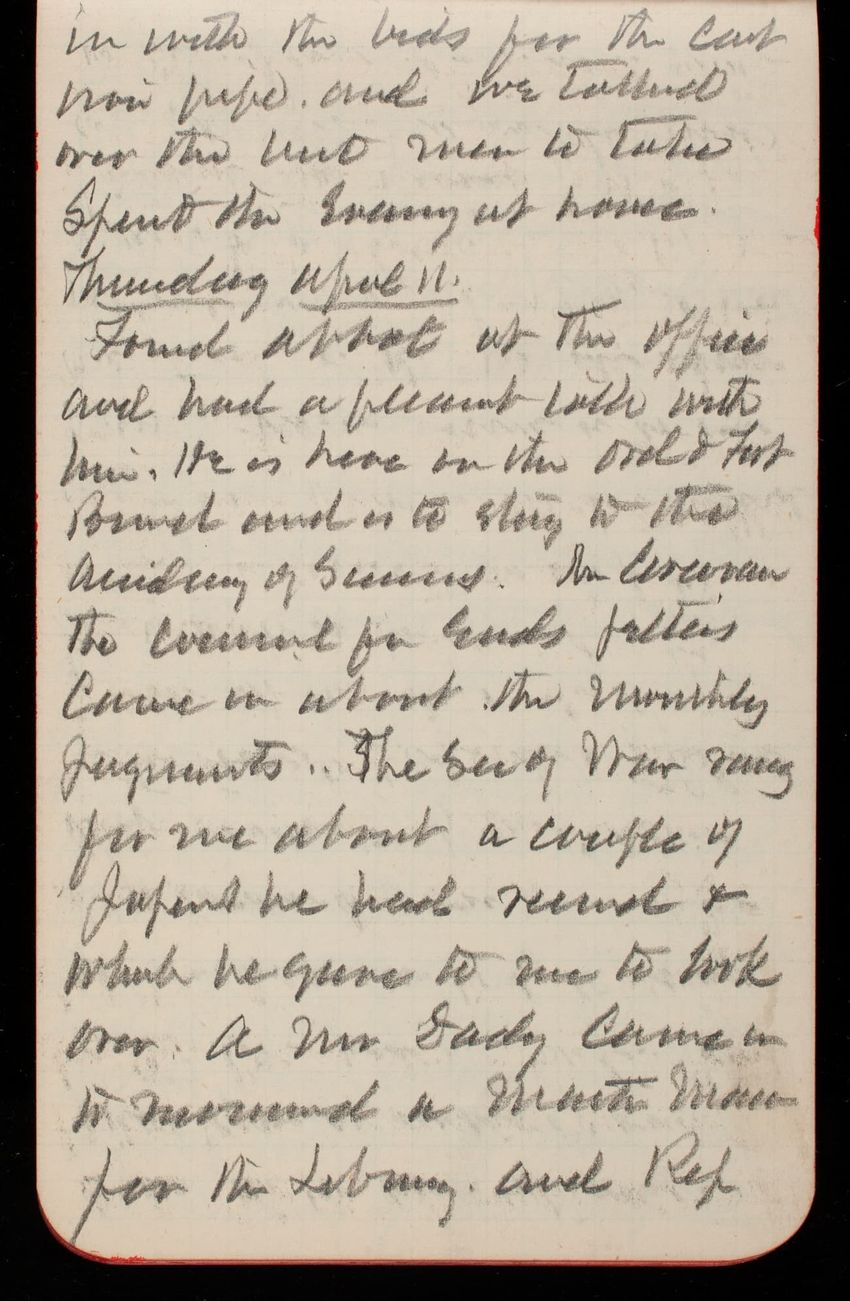 in with the bids for the cast
iron pipe. and we talked
over the best man to take
Spent the Evening at home.
Thursday April 11.
Found Abbot at the office
and had a pleasant talk with
him. He is here on the Ord & Fort
Board and is to stay to the
Academy of Sciences. Mr Corcoran
the Counsel for Eads
Came in about the Monthly
Payments.. The Sec of War rang
for me about a couple of
papers he had received &
which he gave to me to look
over. A Mr Came in
to recommend a Man
for the Library. and Rep